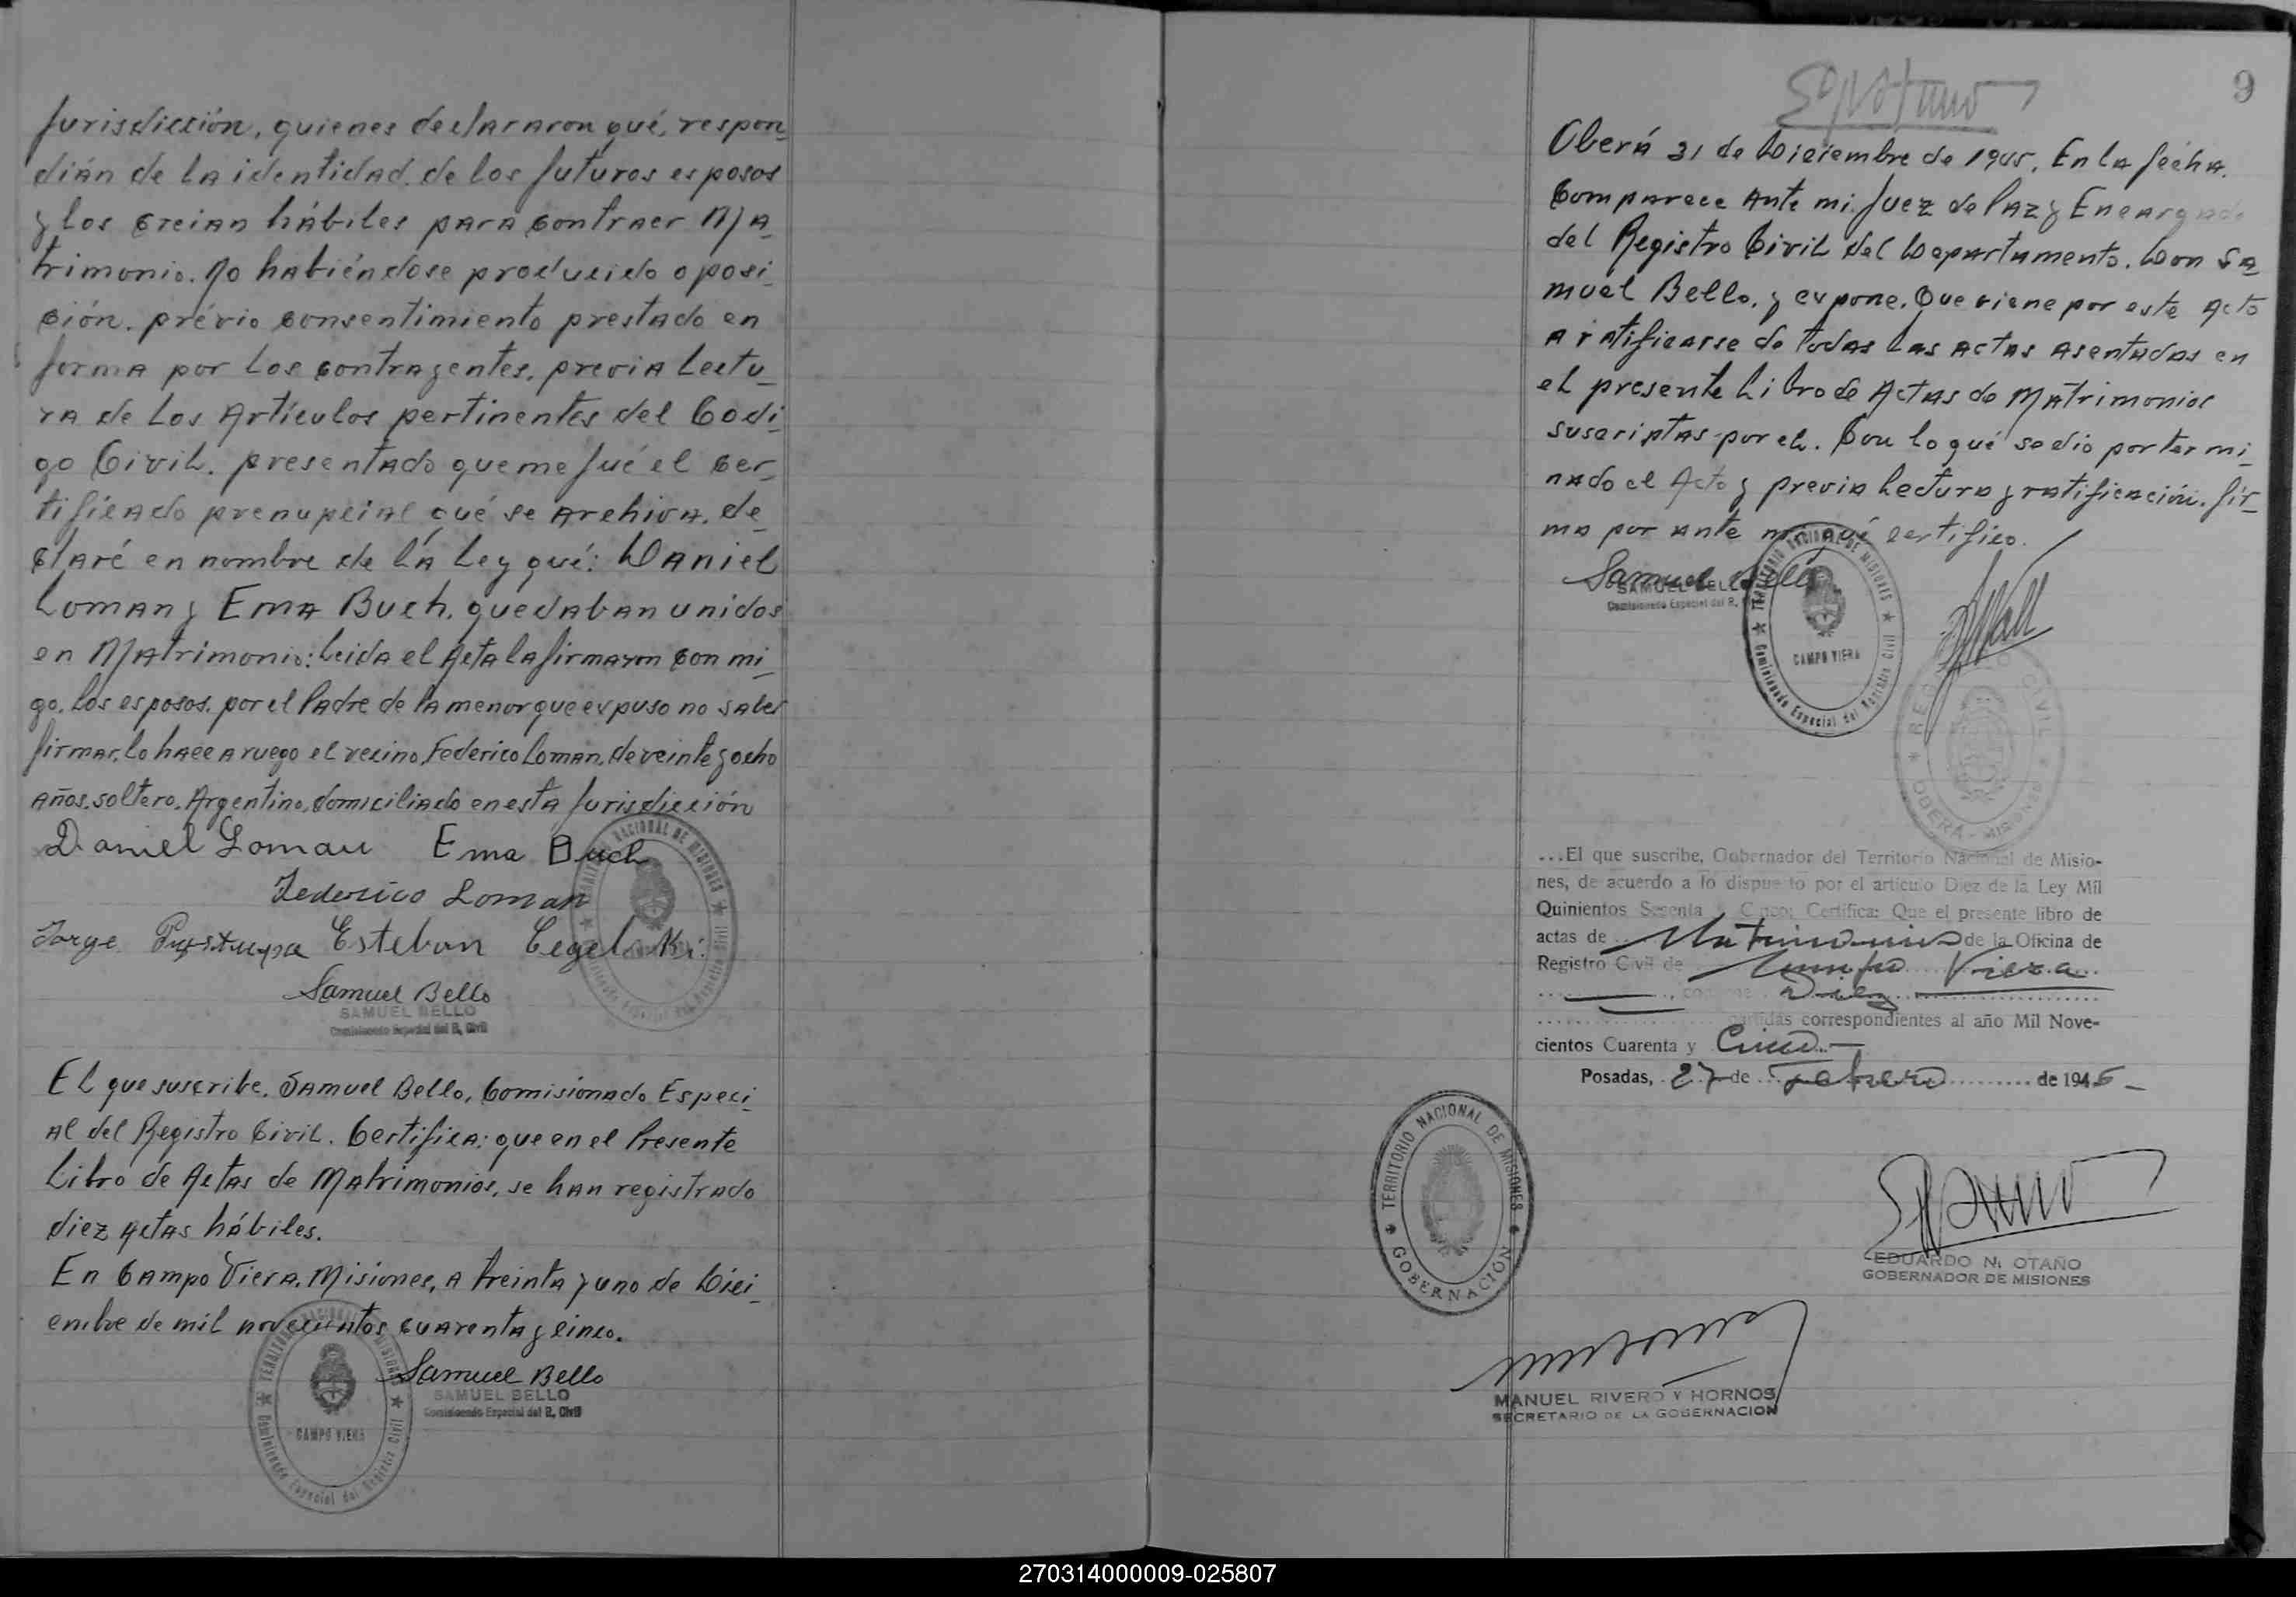 Jurisdicción, quienes declararon qué, respon_
dián de la identidad de los futuros esposos
y los creian hábiles para contraer Ma_
trimonio. No habiéndose producido oposi_
ción. prévio consentimiento prestado en
forma por los contrayentes, previa lectu_
ra de los Artículos pertinentes del Codi_
go Civil. presentado que me fué el cer_
tificado prenupcial qué se archiva. de_
claré en nombre de la Ley qué: Daniel
Loman y Ema Buch. quedaban unidos
en Matrimonio: Leida el Acta la firmaron con mi_
go. los esposos. por el Padre de la menor que expuso no saber
firmar, lo hace a ruego el vecino, Federico Loman, de veinte y ocho
años, soltero. Argentino, domiciliado en esta Jurisdicción
Daniel Loman Ema Buch
Federico Loman
Jorge Esteban
Samuel Bello
SAMUEL BELLO
Comisionado Especial del R. Civil
El que suscribe. Samuel Bello, Comisionado Especi_
al del Registro Civil. Certifica: que en el Presente
Libro de Actas de Matrimonios, se han registrado
diez actas hábiles.
En Campo Viera. Misiones, a treinta y uno de Dici_
embre de mil novecientos cuarenta y cinco.
Samuel Bello
SAMUEL BELLO
Comisionado Especial del R. Civil
TERRITORIO NACIONAL DE MISIONES
CAMPO VIERA
Comisionado Especial del Registro Civil
9
Oberá 31 de Diciembre de 1945. En la fécha.
Comparece Ante mi Juez de Paz y Encargado
del Registro Civil del Departamento. Don Sa_
muel Bello. y expone. Que viene por este Acto
a ratificarse de todas las actas asentadas en
el presente Libro de Actas de Matrimonios
suscriptas por el. Con lo qué se dio por termi_
nado el Acto y previa Lectura y ratificación. fir_
ma por ante mi qué certifico.
Samuel Bello
SAMUEL BELLO
Comisionado Especial del R.
TERRITORIO NACIONAL DE MISIONES
CAMPO VIERA
Comisionado Especial del Registro Civil
REGISTRO CIVIL
OBERA - MISIONES
...El que suscribe, Gobernador del Territorio Nacional de Misio-
nes, de acuerdo a lo dispuesto por el artículo Diez de la Ley Mil
Quinientos Sesenta y Cinco; Certifica: Que el presente libro de
actas de Matrimonios de la Oficina de
Registro Civil de Campo Viera
contiene Diez
partidas correspondientes al año Mil Nove-
cientos Cuarenta y Cinco.-
Posadas, 27 de Febrero de 1946_
TERRITORIO NACIONAL DE MISIONES
GOBERNACIÓN
EDUARDO N. OTAÑO
GOBERNADOR DE MISIONES
MANUEL RIVERO Y HORNOS
SECRETARIO DE LA GOBERNACION
270314000009-025807